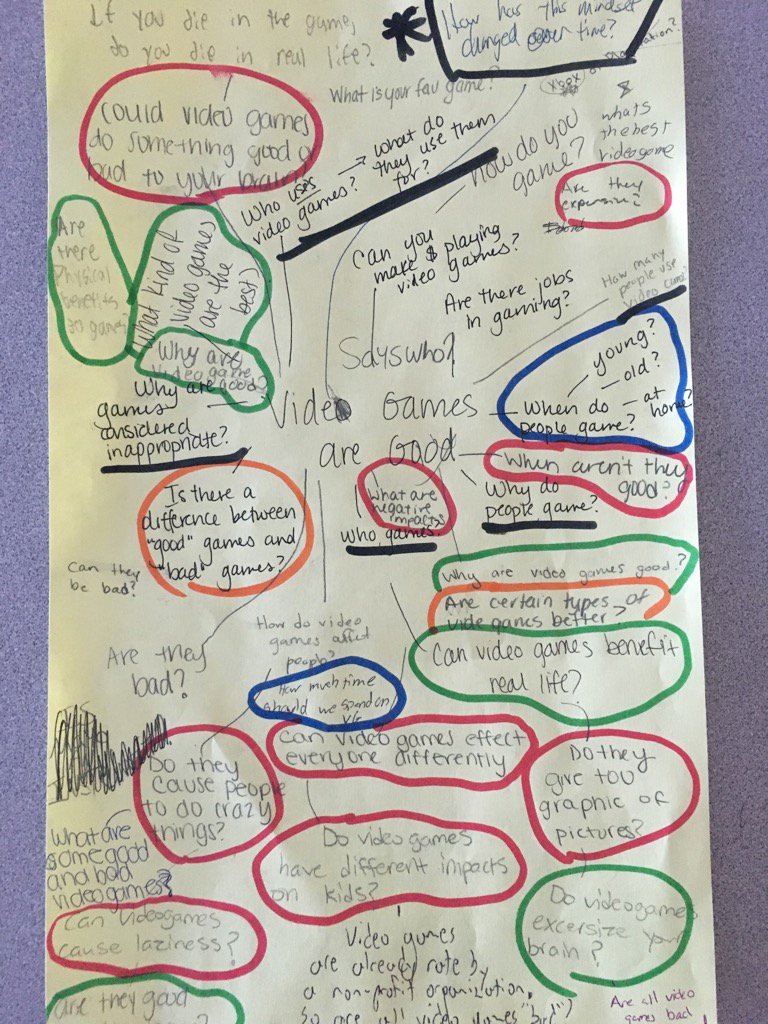 If you die in the game,
do you die in real life?
How has this mindset
changed over time?
Xbox or Playstation?
What is your fav game?
Could video games
do something good or
bad to your brain?
Who uses
video games?
what do
they use them
for?
How do you
game?
whats
the best
videogame
Are they
expensive?
Are
there
Physical
benefits
games?
What kind of
video games
are the
best)
Can you
make $ playing
video games?
Are there jobs
in gaming?
How many
people use
video
Why are
video game
good?
Says who?
Why are
games
considered
inappropriate?
Video Games
are Good
young?
old?
When do
people game?
at
home?
When aren't they
good?
Why do
people game?
What are
negative
impacts
who games
Is there a
difference between
"good" games and
"bad" games?
Can they
be bad?
Why are video games good?
Are certain types of
vide games better?
Can video games benefit
real life?
How do video
games affect
people?
Are they
bad?
How much time
should we spend on
Can video games effect
everyone differently
Do they
cause people
to do crazy
things?
Do they
give too
graphic of
pictures?
What are
some good
and bad
video games?
Do video games
have different impacts
on kids?
Can videogames
cause laziness?
Do videogames
excersize your
brain?
Video games
are already rate by
a non-profit organization,
So are all video games "bad")
are they good
Are all video
games bad